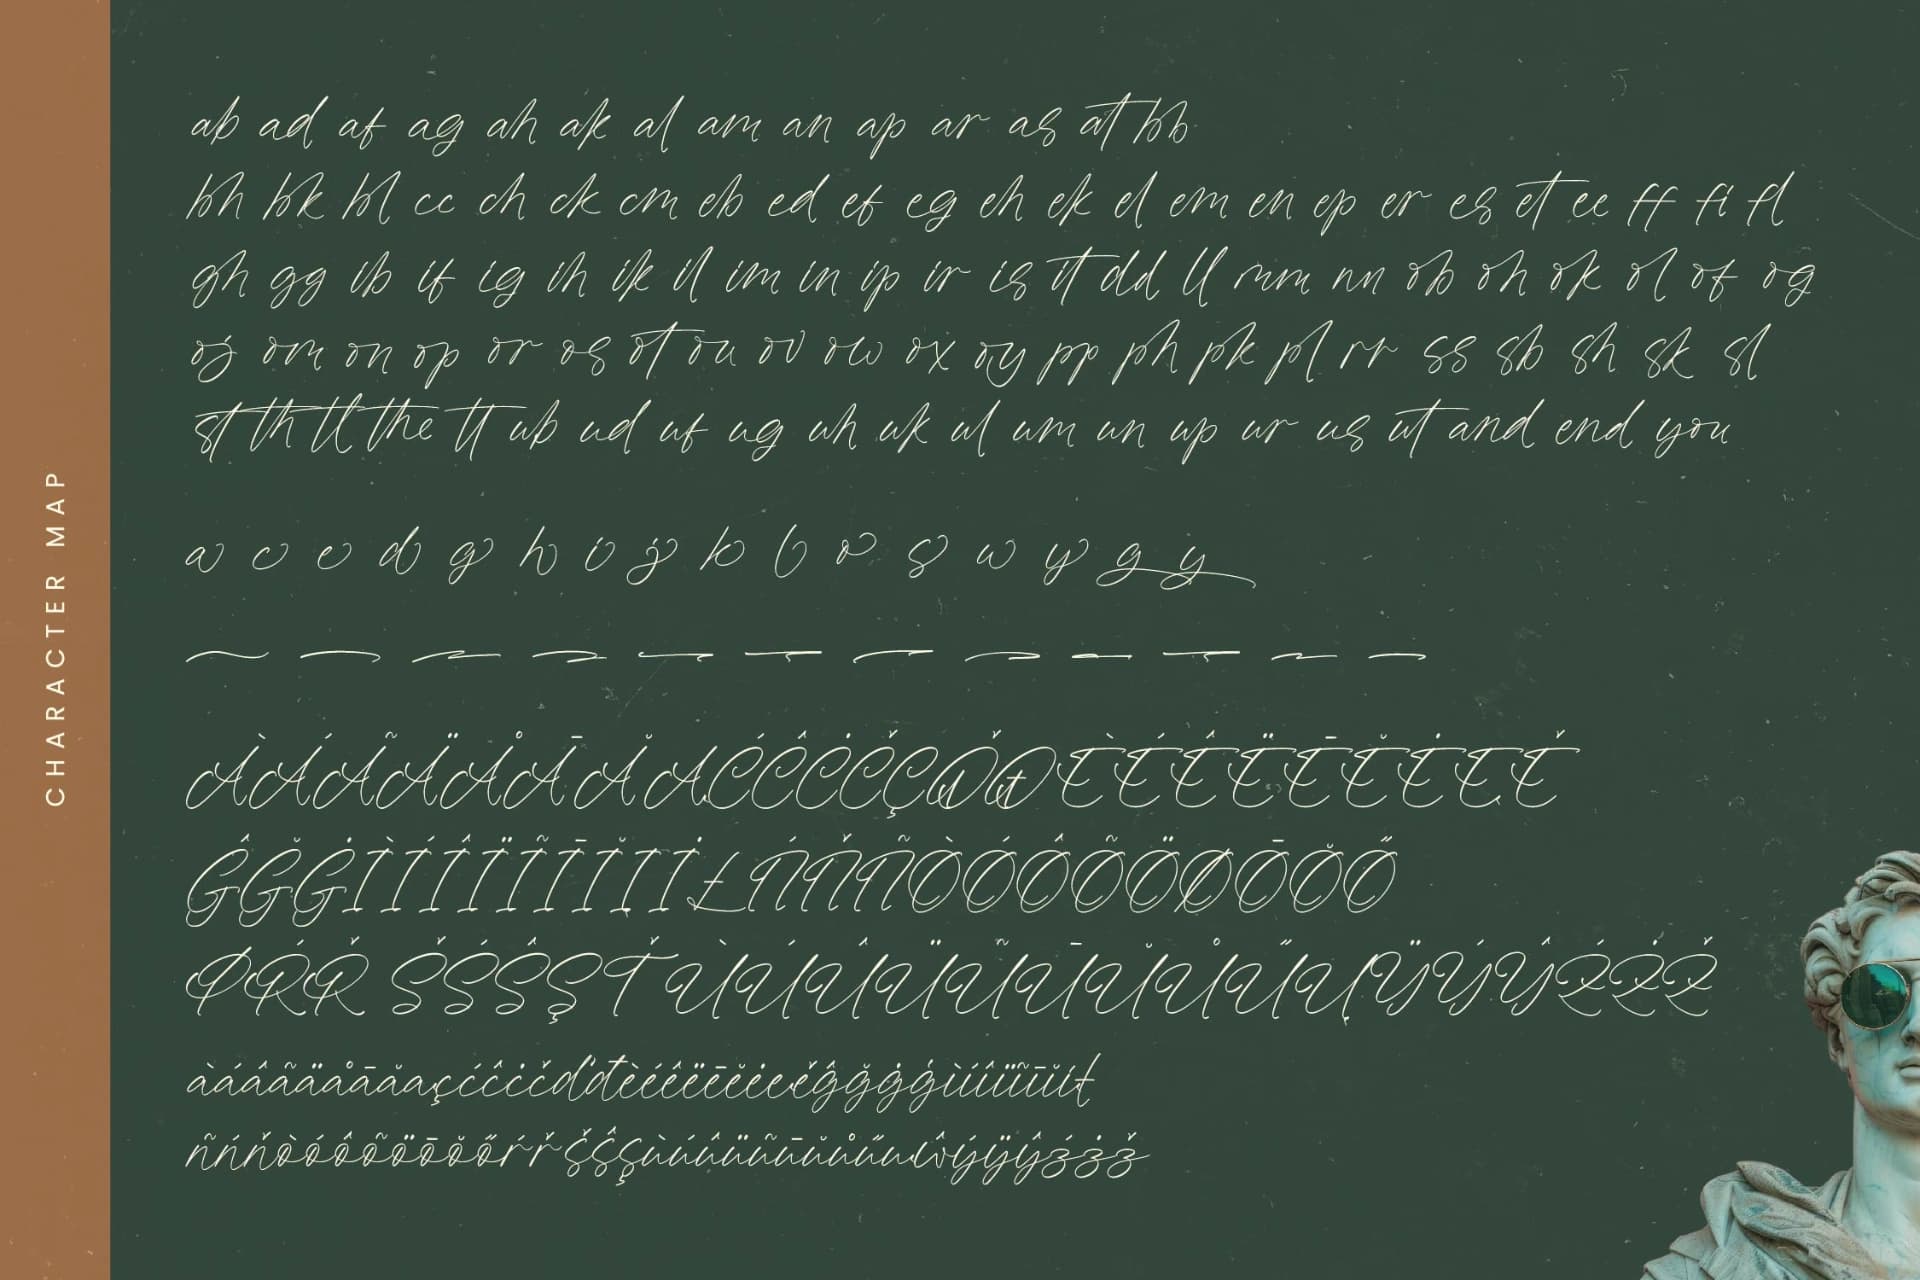 CHARACTER MAP
ab ad af ag ah ak al am an ap ar as at bb
bh bk bl cc ch ck cm eb ed ef eg eh ek el em en ep er es et ee ff fi fl
gh gg ib if ig ih ik il im in ip ir is it dd ll mm nn ob oh ok ol of og
oj om on op or os ot ou ov ow ox oy pp ph pk pl rr ss sb sh sk sl
st th tl the tt ub ud uf ug uh uk ul um un up ur us ut and end you
a c e d g h i j k l o s w y g y
ÀÁÃÄÅĀĂĄĆĈĊČÇĎĐÈÉÊËĒĔĖĘĚ
ĜĞĠÌÍÎÏĨĪĬĮİŁŃŇÑÒÓÔÕÖØŌŎŐ
ØŔŘŠŚŜŞŤÙÚÛÜŨŪŬŮŰŲŸÝŶŹŻŽ
àáâãäåāăąçćĉċčďđèéêëēĕėęěĝğġģìíîïĩīĭįł
ñńňòóôõöōŏőŕřšŝşùúûüũūŭůűųŵýÿŷźżž